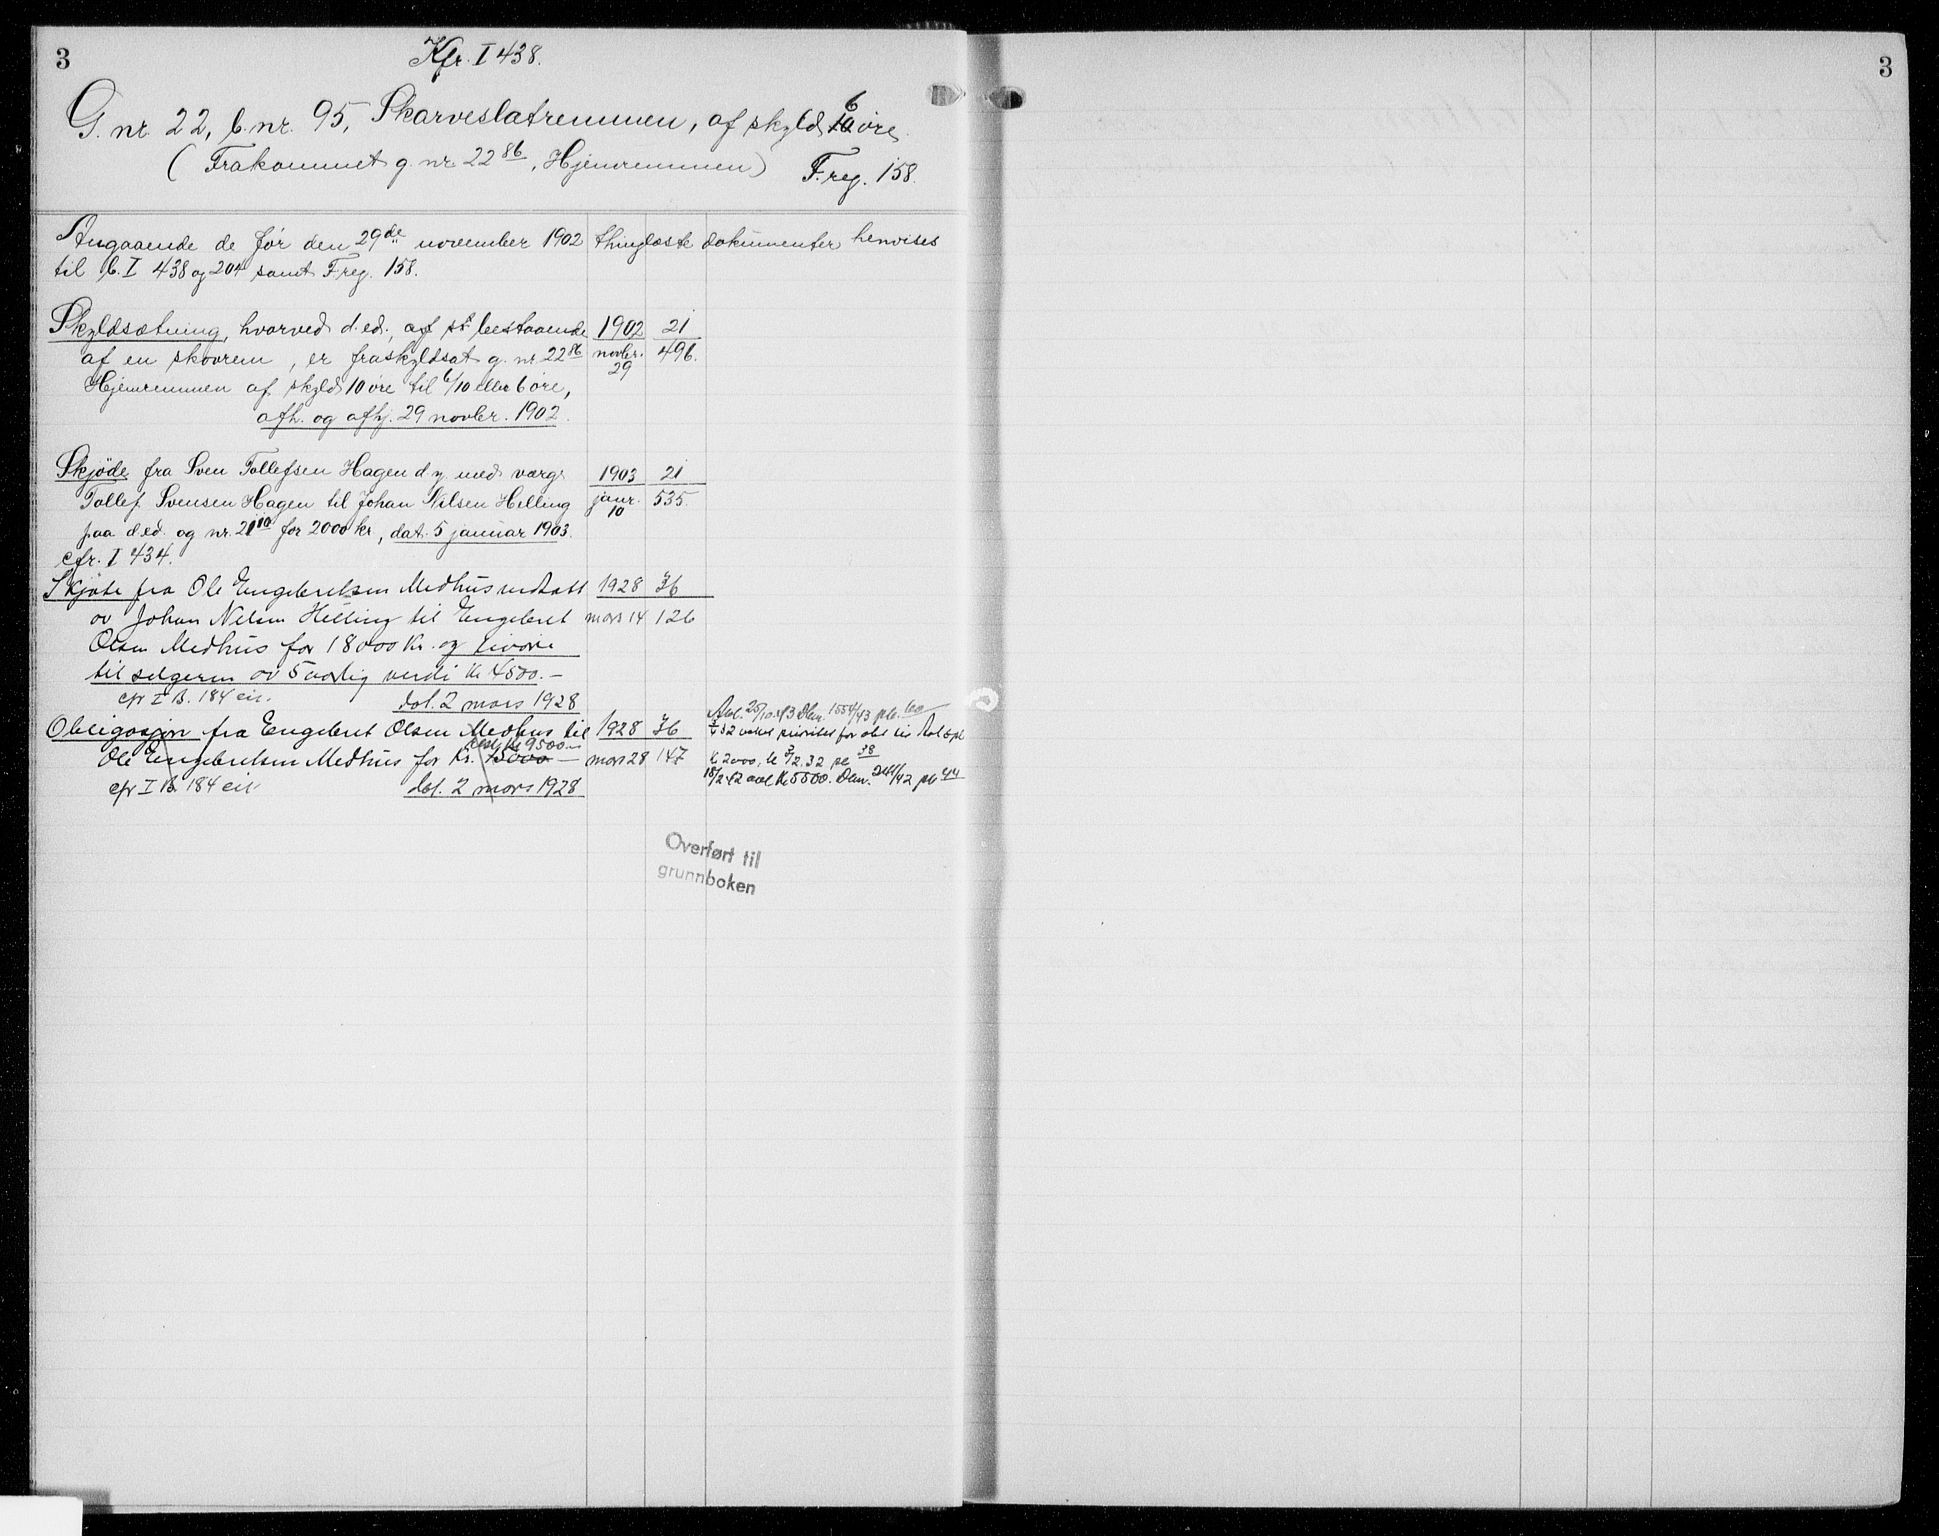 3
Kfr. I 438.
G. nr. 22, b. nr. 95, Skarveslatremmen, af skyld 6 10 øre
(Frakommet g. nr. 22 86, Hjemremmen) F. reg. 158.
Angaaende de før den 29de november 1902 thinglæste dokumenter henvises
til b. I 438 og 204 samt F reg. 158.
Skyldsætning, hvorved d. ed., af st bestaaende 1902 21
af en skovrem, er fraskyldsat g. nr. 22 86 novbr. 496.
Hjemremmen af skyld 10 øre til 6/10 eller 6 øre, 29
afh. og afhj. 29 novbr. 1902.
Skjøde fra Sven Tollefsen Hagen d. y. med værge 1903 21
Tollef Svensen Hagen til Johan Nilsen Helling janr. 535.
paa d. ed. og nr. 21 110 for 2000 kr, dat. 5 januar 1903. 10
cfr. I 434.
Skjøte fra Ole Engebretsen Medhus utstatt 1928 36
av Johan Nilsen Helling til Engebret mars 14 126
Olsen Medhus for 18000 Kr. og livøre
til selgeren av 5 aarlig verdi Kr 4500.-
cfr I B. 184 eir. dat. 2 mars 1928
Obligasjon fra Engebret Olsen Medhus til 1928 36
Rest Kr 9500.-
Ole Engebretsen Medhus for Kr. 15000 — mars 28 147
cfr I B. 184 eir dat. 2 mars 1928
Avl. 25/10.43 Dbnr. 1554/43 pb. 60
32 veket prioritet for obl til
Kr 2000, 2.32 pb 38
18/2 42 avl Kr 5500. Dbnr. 42 pb 44
Overført til
grunnboken
3